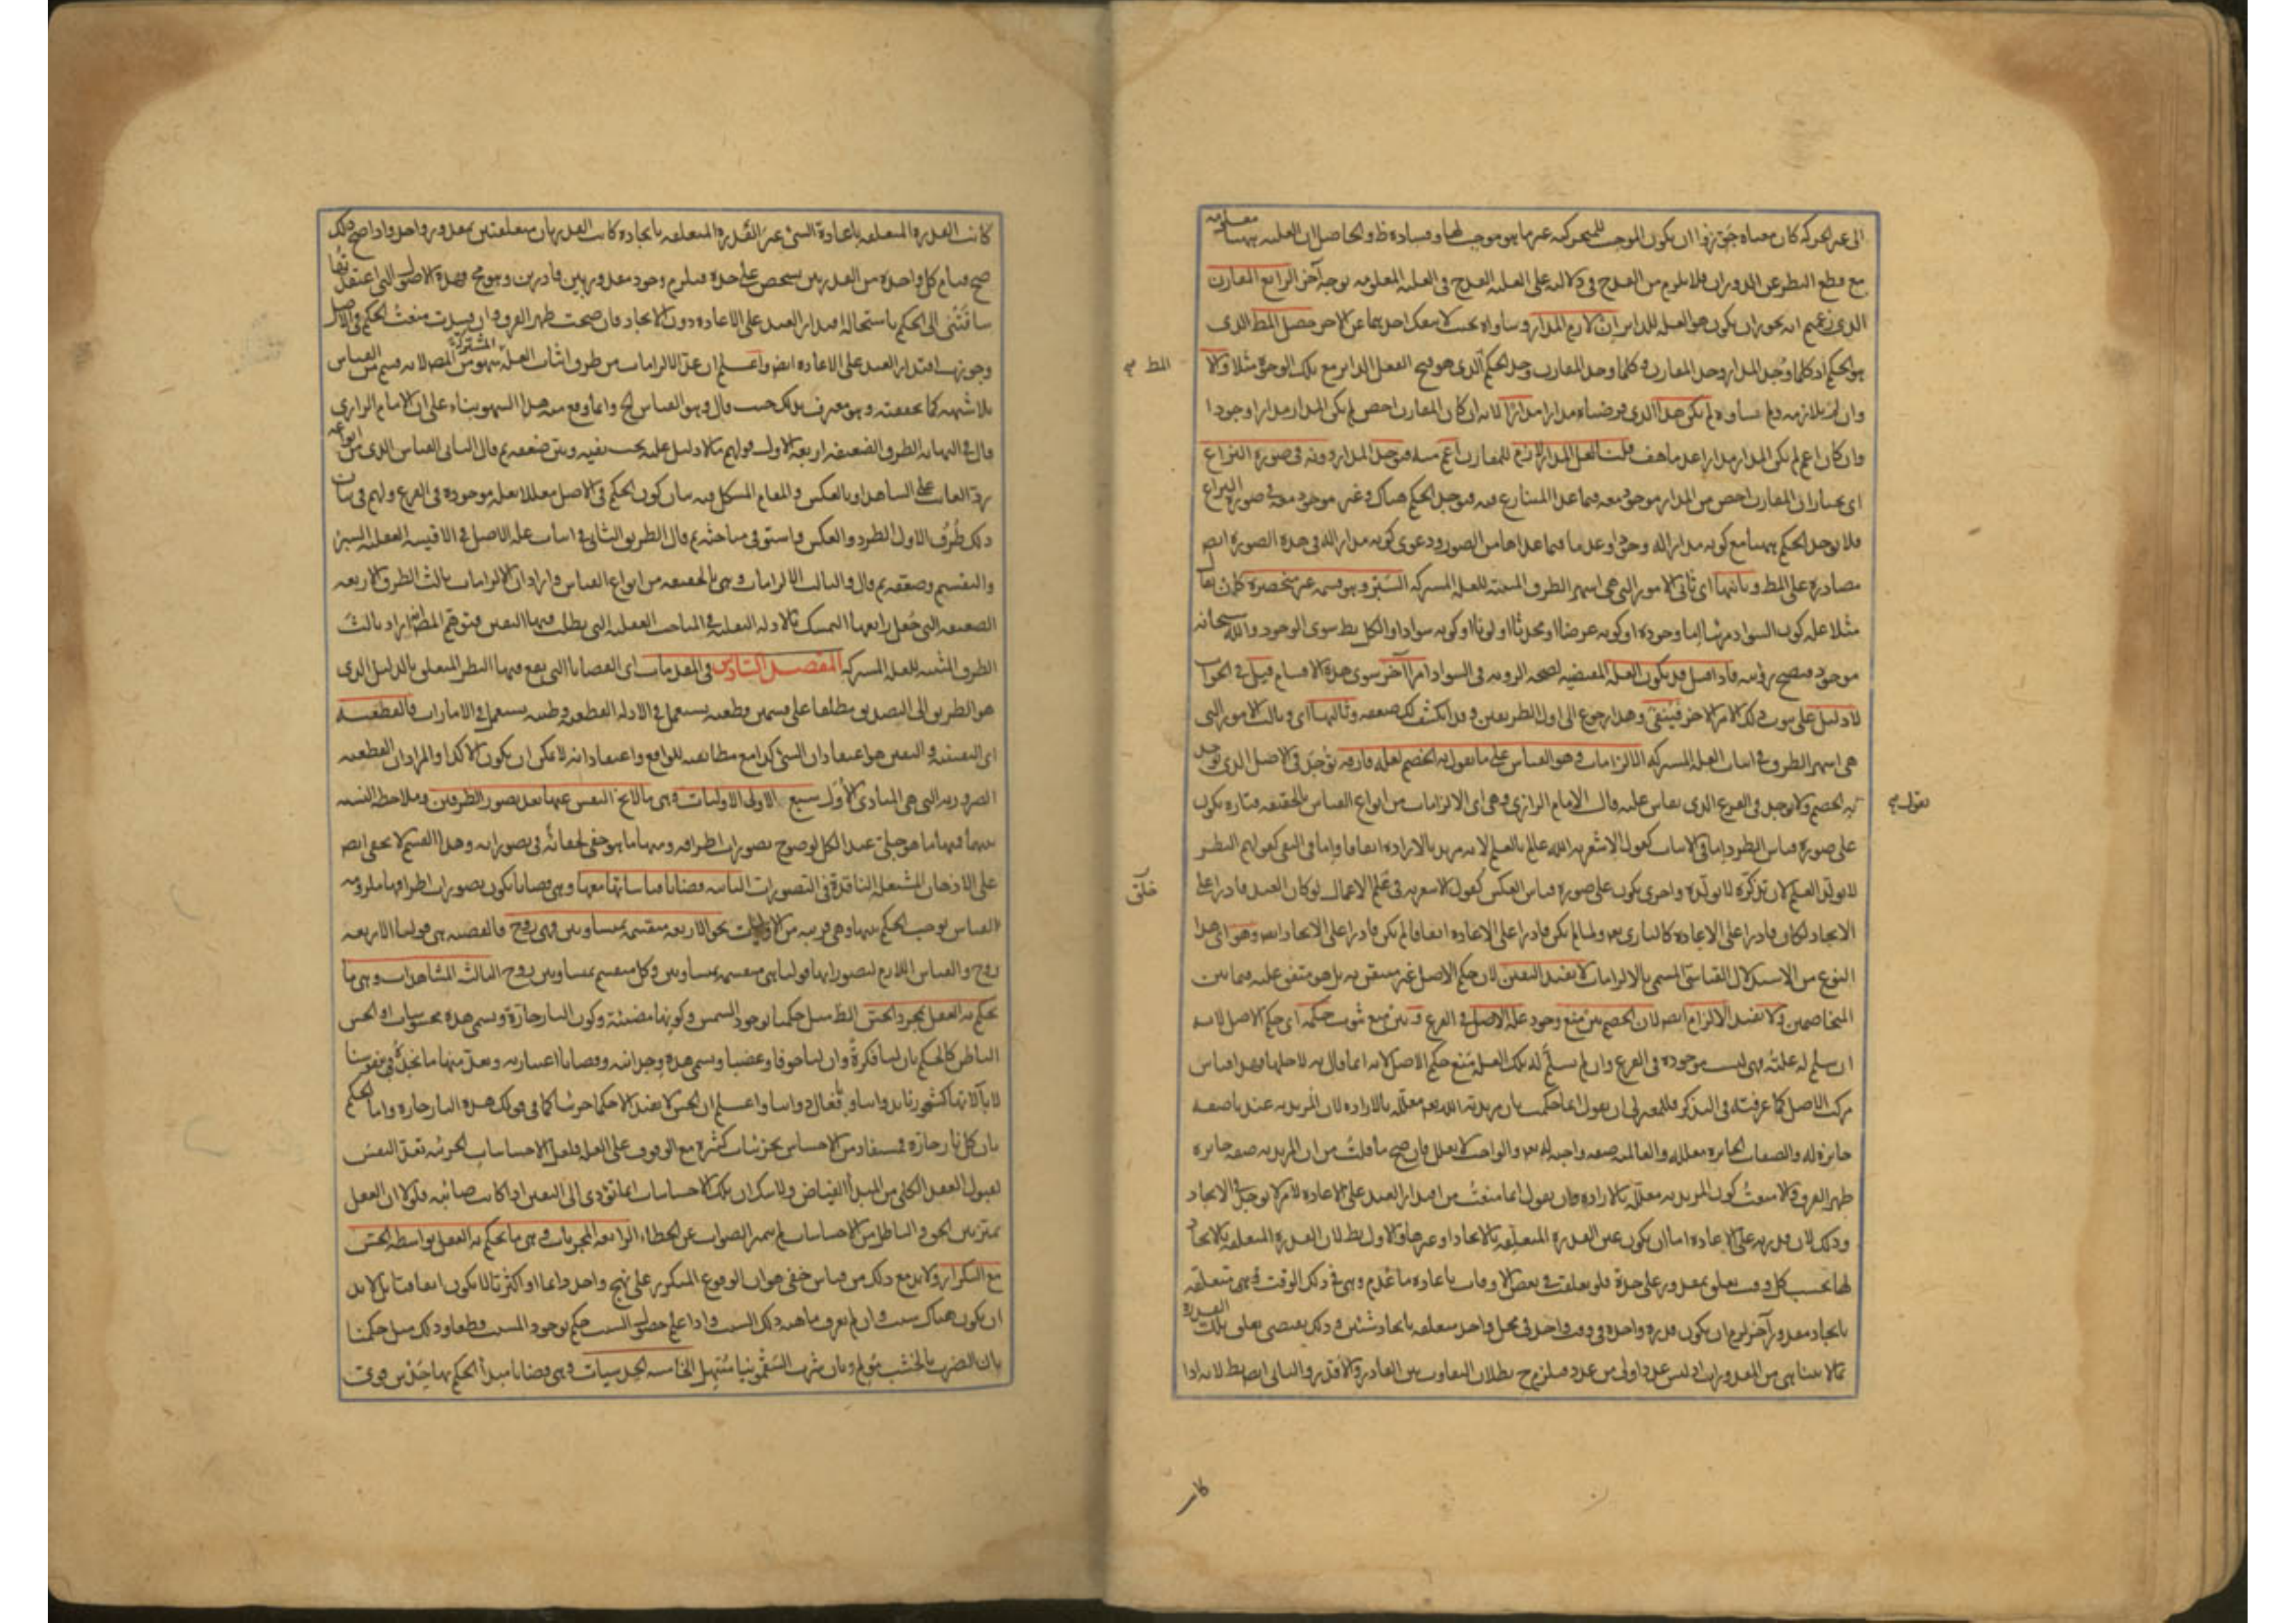 الى غير الحركة كان معناه حق زوا ان يكون الموجب للمتحركية غير ما هو موجب لها وفساده ظ والحاصل ان العلية ههنا معلومة
مع قطع النظر عن الدوران فلا يلزم من القدح في دلالته على العلية القدح في العلية المعلومة بوجه آخر الرابع المقارن
الذى زعمتم انه يجوز ان يكون هو العلة للدائر ان لازم المدار وساواه بحيث لا ينفك احدهما عن الاخر حصل المط الذى
هو الحكم اذ كلما وجد المدار وجد المقارن وكلما وجد المقارن وجد الحكم الذى هو قبح الفعل الدائر مع تلك الوجوه مثلا والا
وان لم يلازمه ولم يساوه لم يكن هذا الذى فرضناه مدارا مدارا لانه ان كان المقارن اخص لم يكن المدار مدارا وجودا
وان كان اعم لم يكن المدار مدارا عدما هف قلت لعل المدار لازم للمقارن اعم منه فيوجد المدار دونه في صورة النزاع
اى يختار ان المقارن اخص من المدار موجود معه فيما عدا المتنازع فيه فيوجد الحكم هناك وغير موجود معه في صورة النزاع
فلا يوجد الحكم ههنا مع كونه مدارا له وجودا وعدما فيما عداها من الصور ودعوى كونه مدارا له في هذه الصورة ايض
مصادرة على المط وثانيها اى ثانى الامور التى هى اشهر الطرق المثبتة للعلة المشتركة السبر وهو قسمة غير منحصرة كان يقا
مثلا علة كون السواد مرئيا اما وجوده او كونه عرضا او محدثا او لونا او كونه سوادا والكل بط سوى الوجود والله سبحانه
موجود فيصح رؤيته فاذا قيل قد يكون العلة المقتضية لصحة الرؤية في السواد امرا آخر سوى هذه الاقسام قيل في الجواب
لا دليل على ثبوت ذلك الامر الاخر فينتفى وهذا رجوع الى اول الطريقين وقد انكشف لك ضعفه وثالثها اى وثالث الامور التى
هى اشهر الطرق في اثبات العلة المشتركة الالزامات وهو القياس على ما يقول به الخصم لعلة فارقة توجد في الاصل الذى يوجد
به الخصم ولا يوجد في الفرع الذى يقاس عليه قال الامام الرازى وهى اى الالزامات من انواع القياس بالحقيقة فتارة يكون
على صورة قياس الطرد اما في الاثبات كقول الاشعرية الله عالم بالعلم لانه مريد بالارادة اتفاقا واما في النفى كقولهم النظر
لا يولد العلم لان تذكره لا يولده واخرى يكون على صورة قياس العكس كقول الاشعرية في خلق الاعمال لو كان العبد قادرا على
الايجاد لكان قادرا على الاعادة كالبارى تع ولما لم يكن قادرا على الاعادة اتفاقا لم يكن قادرا على الايجاد ايض وهو اى هذا
النوع من الاستدلال القياسى المسمى بالالزامات لا يفيد اليقين لان حكم الاصل غير متيقن به بل هو متفق عليه فيما بين
المتخاصمين ولا يفيد الالزام ايض لان الخصم بين منع وجود علة الاصل في الفرع وبين منع ثبوت حكمه اى حكم الاصل لانه
ان سلم له علته فهى ليست موجودة في الفرع وان لم يسلم له تلك العلة منع حكم الاصل لانه انما قال به لاجلها فهذا قياس
مركب الاصل كما عرفته في التذكر فللمعتزلى ان يقول انما حكمت بان مريدية الله تع معللة بالارادة لان المريدية عندنا صفة
جائزة له والصفات الجائزة معللة والعالمية صفة واجبة له تع والواجب لا يعلل فان صح ما قلت من ان المريدية صفة جائزة
ظهر الفرق والا منعت كون المريدية معللة بالارادة وان يقول انما منعت من اقدار العبد على الاعادة لامر لا يوجد في الايجاد
وذلك لان قدرته على الاعادة اما ان يكون عين القدرة المتعلقة بالايجاد او غيرها والاول بط لان القدرة المتعلقة بالايجاد
لها بحسب كل وقت تعلق بمقدور على حدة فلو تعلقت في بعض الاوقات باعادة ما عدم وهى في ذلك الوقت فهى متعلقة
بايجاد مقدور آخر لزم ان يكون قدرة واحدة في وقت واحد في محل واحد متعلقة بايجاد شيئين وذلك يقتضى تعلق تلك القدرة
بما لا يتناهى من المقدورات اذ ليس عدد اولى من عدد فيلزم ح بطلان التفاوت بين القادر والاقدر والثانى ايض بط لانه اذا
المط صح
يقول صح
خلق
كا
كانت القدرة المتعلقة باعادة الشئ غير القدرة المتعلقة بايجاده كانت القدرتان متعلقتين بمقدور واحد واذا صح ذلك
صح قيام كل واحدة من القدرتين بشخص على حدة فيلزم وجود مقدور بين قادرين وهو مح فهذه الاصول التى اعتقدتها
ساقتنى الى الحكم باستحالة اقدار العبد على الاعادة دون الايجاد فان صحت ظهر الفرق وان فسدت منعت الحكم في الاصل
وجوزت اقتدار العبد على الاعادة ايض واعلم ان عد الالزامات من طرق اثبات العلة المشتركة سهو من المص لانه قسم من القياس
بلا شبهة كما تحققته وهو معترف بذلك حيث قال وهو القياس الخ وانما وقع منه هذا السهو بناء على ان الامام الرازى
قال في النهاية الطرق الضعيفة اربعة الاول قولهم ما لا دليل عليه يجب نفيه وبين ضعفه ثم قال الثانى القياس الذى من انواعه
رد الغائب على الشاهد او بالعكس والمقام المشكل فيه بيان كون الحكم في الاصل معللا بعلة موجودة في الفرع ولهم في بيان
ذلك طرق الاول الطرد والعكس واستوفى مباحثه ثم قال الطريق الثانى في اثبات علة الاصل في الاقيسة العقلية السبر
والتقسيم وضعفه ثم قال والثالث الالزامات وهى بالحقيقة من انواع القياس واراد ان الالزامات ثالث الطرق الاربعة
الضعيفة التى جعل رابعها التمسك بالادلة النقلية في المباحث العقلية التى يطلب فيها اليقين فتوهم المص انه اراد ثالث
الطرق المثبتة للعلة المشتركة المقصد السادس في المقدمات اى القضايا التى يقع فيها النظر المتعلق بالدليل الذى
هو الطريق الى التصديق مطلقا على قسمين قطعية يستعمل في الادلة القطعية وظنية يستعمل في الامارات فالقطعية
اى اليقينية واليقين هو اعتقاد ان الشئ كذا مع مطابقته للواقع واعتقاد انه لا يمكن ان يكون الا كذا والمراد ان القطعية
الضرورية التى هى المبادى الاول سبع الاولى الاوليات وهى ما لا يخ النفس عنها بعد تصور الطرفين وملاحظة النسبة
بينهما فمنها ما هو جلى عند الكل لوضوح تصورات اطرافه ومنها ما هو خفى لخفائه في تصوراته وهذا القسم لا يخفى ايض
على الاذهان المشتعلة الناقدة في التصورات الثانية قضايا قياساتها معها وهى قضايا يكون تصورات اطرافها ملزومة
لقياس يوجب الحكم بينهما وهى قريبة من الاوليات نحو الاربعة منقسمة بمتساويين فهى زوج فالقضية هى قولنا الاربعة
زوج والقياس اللازم لتصوراتها قولنا هى منقسمة بمتساويين وكل منقسم بمتساويين زوج الثالث المشاهدات وهى ما
يحكم به العقل بمجرد الحس الظ مثل حكمنا بوجود الشمس وكونها مضيئة وكون النار حارة ويسمى هذه محسوسات او الحس
الباطن كالحكم بان لنا فكرة وان لنا خوفا وغضبا ويسمى هذه وجدانية وقضايا اعتبارية ويعد منها ما نجده في نفوسنا
لا بآلاتها كشعورنا بذواتنا وافعال ذواتنا واعلم ان الحس لا يفيد الا حكما جزئيا كما في قولك هذه النار حارة واما الحكم
بان كل نار حارة فمستفاد من الاحساس بجزئيات كثيرة مع الوقوف على العلة فلعل الاحساسات الجزئية تعد النفس
لقبول العقد الكلى من المبدأ الفياض ولا شك ان تلك الاحساسات انما تؤدى الى اليقين اذا كانت صائبة فلولا ان العقل
يميز بين الحق والباطل من الاحساسات لم يتميز الصواب عن الخطاء الرابعة المجربات وهى ما يحكم به العقل بواسطة الحس
مع التكرار ولا بد مع ذلك من قياس خفى هو ان الوقوع المتكرر على نهج واحد دائما او اكثريا لا يكون اتفاقيا بل لا بد
ان يكون هناك سبب وان لم يعرف ماهية ذلك السبب واذا علم حصول السبب حكم بوجود المسبب قطعا وذلك مثل حكمنا
بان الضرب بالخشب مؤلم وبان شرب السقمونيا مسهل الخامسة الحدسيات وهى قضايا مبدأ الحكم بها حدس قوى